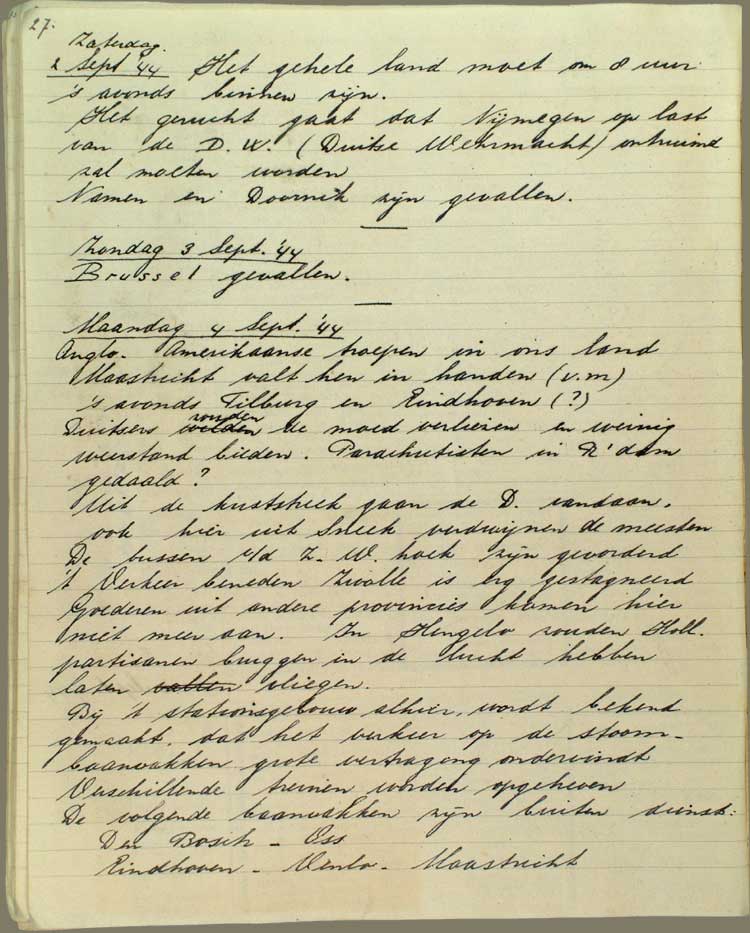 27.
Zaterdag.
2 Sept '44 Het gehele land moet om 8 uur
's avonds binnen zijn.
Het gerucht gaat dat Nijmegen op last
van de D.W. (Duitse Wehrmacht) ontruimd
zal moeten worden
Namen en Doornik zijn gevallen.
Zondag 3 Sept. '44
Brussel gevallen.
Maandag 4 Sept. '44
Anglo-Amerikaanse troepen in ons land
Maastricht valt hen in handen (v.m)
's avonds Tilburg en Eindhoven (?)
zouden
Duitsers wilden de moed verliezen en weinig
weerstand bieden. Parachutisten in R'dam
gedaald?
Uit de kuststreek gaan de D. vandaan,
ook hier uit Sneek verdwijnen de meesten
De bussen v/d Z.W. hoek zijn gevorderd
't Verkeer beneden Zwolle is erg gestagneerd
Goederen uit andere provincies komen hier
niet meer aan. In Hengelo zouden Holl.
partisanen bruggen in de lucht hebben
laten vallen vliegen.
Bij 't stationsgebouw alhier, wordt bekend
gemaakt, dat het verkeer op de stoom-
baanvakken grote vertraging ondervindt
Verschillende treinen worden opgeheven
De volgende baanvakken zijn buiten dienst:
Den Bosch - Oss
Eindhoven - Venlo - Maastricht